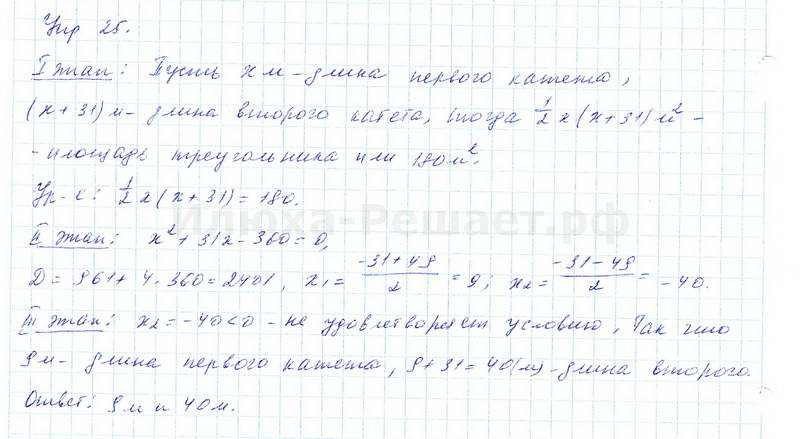 Упр 25.
I этап: Пусть x м – длина первого катета,
(x + 31) м – длина второго катета, тогда 1/2 x (x + 31) м² –
– площадь треугольника или 180 м².
Ур-е: 1/2 x (x + 31) = 180.
Илюха-Решает.рф
II этап: x² + 31x – 360 = 0,
D = 961 + 4 · 360 = 2401, x₁ = (-31 + 49)/2 = 9; x₂ = (-31 – 49)/2 = -40.
III этап: x₂ = -40 < 0 – не удовлетворяет условию, так что
9 м – длина первого катета, 9 + 31 = 40 (м) – длина второго.
Ответ: 9 м и 40 м.